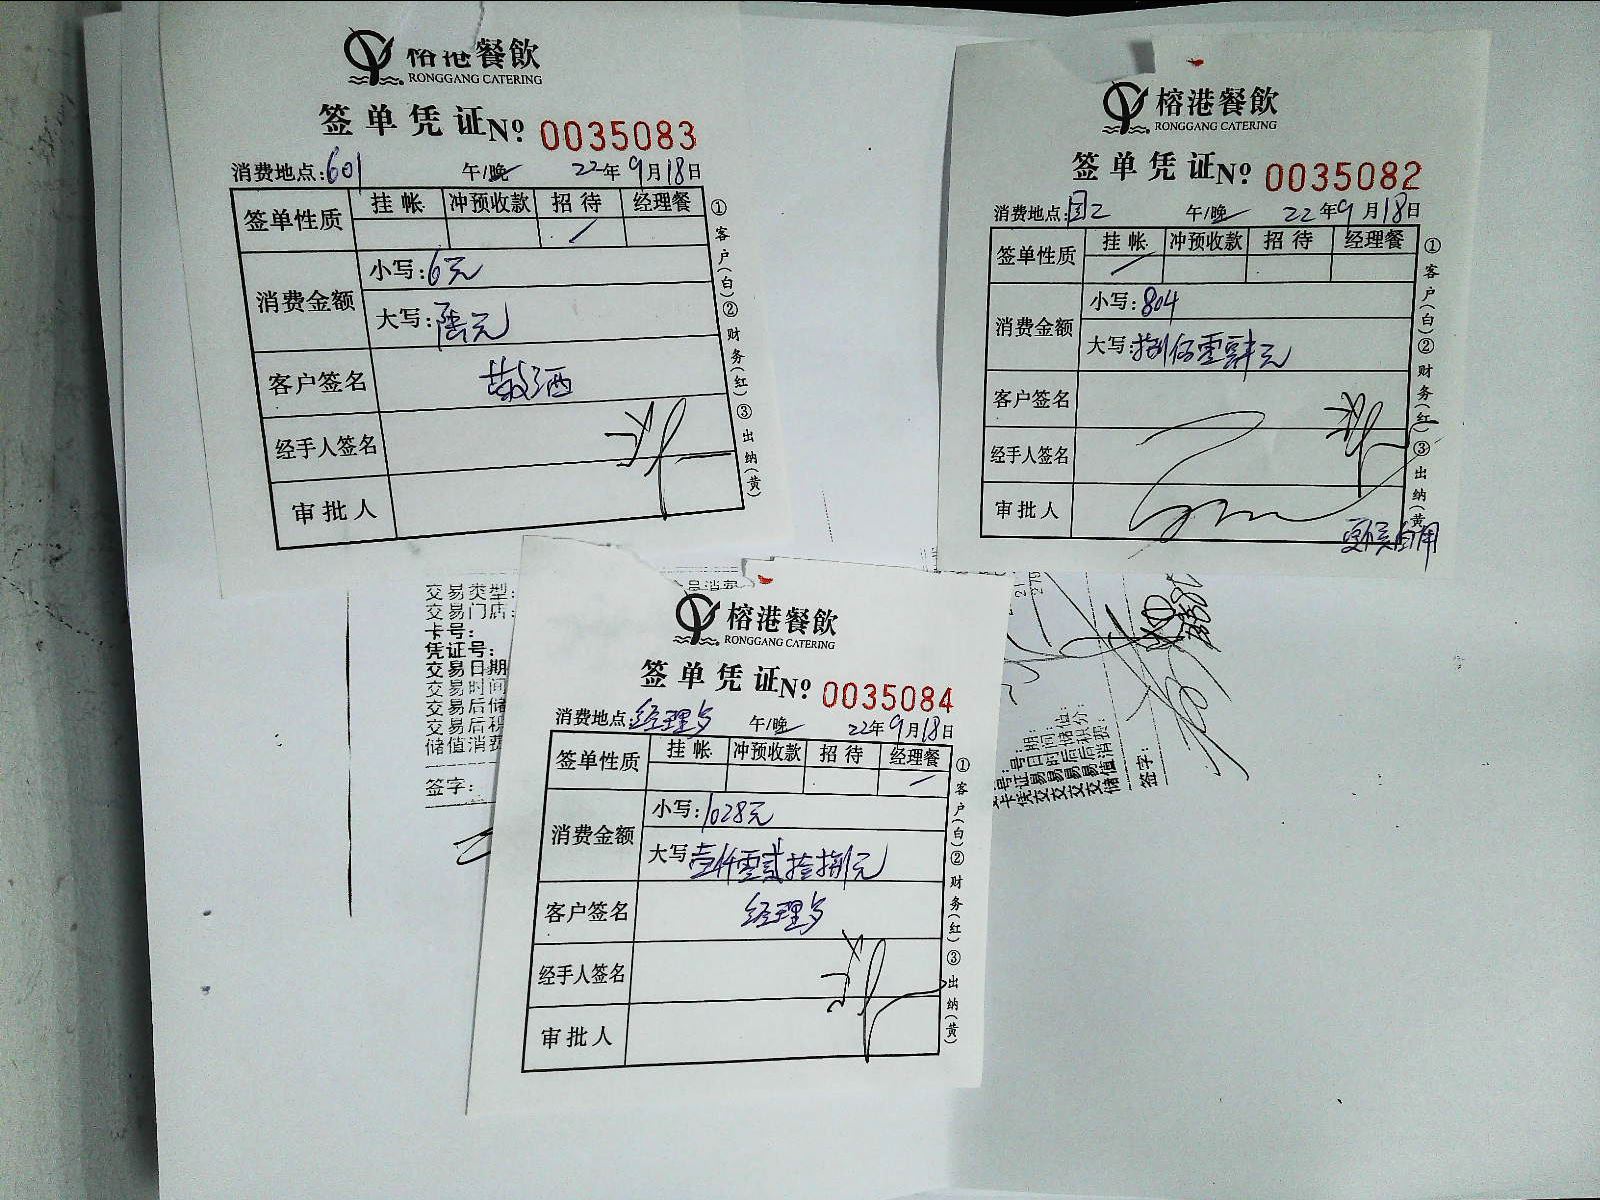 榕港餐飲
RONGGANG CATERING
签单凭证 Nº 0035083
消费地点:601 午/晚 22年9月18日
签单性质 挂帐 冲预收款 招待 经理餐
消费金额 小写:6元
大写:陆元
客户签名
经手人签名
审批人
①客户(白)②财务(红)③出纳(黄)
榕港餐飲
RONGGANG CATERING
签单凭证 Nº 0035082
消费地点: 午/晚 22年9月18日
签单性质 挂帐 冲预收款 招待 经理餐
消费金额 小写:804
大写:捌佰零肆元
客户签名
经手人签名
审批人
①客户(白)②财务(红)③出纳(黄)
榕港餐飲
RONGGANG CATERING
签单凭证 Nº 0035084
消费地点:经理 午/晚 22年9月18日
签单性质 挂帐 冲预收款 招待 经理餐
消费金额 小写:1028元
大写 壹仟零贰拾捌元
客户签名 经理
经手人签名
审批人
①客户(白)②财务(红)③出纳(黄)
交易类型:
交易门店:
卡号:
凭证号:
交易日期
交易时间
交易后储
交易后积
储值消费
签字:
签字: